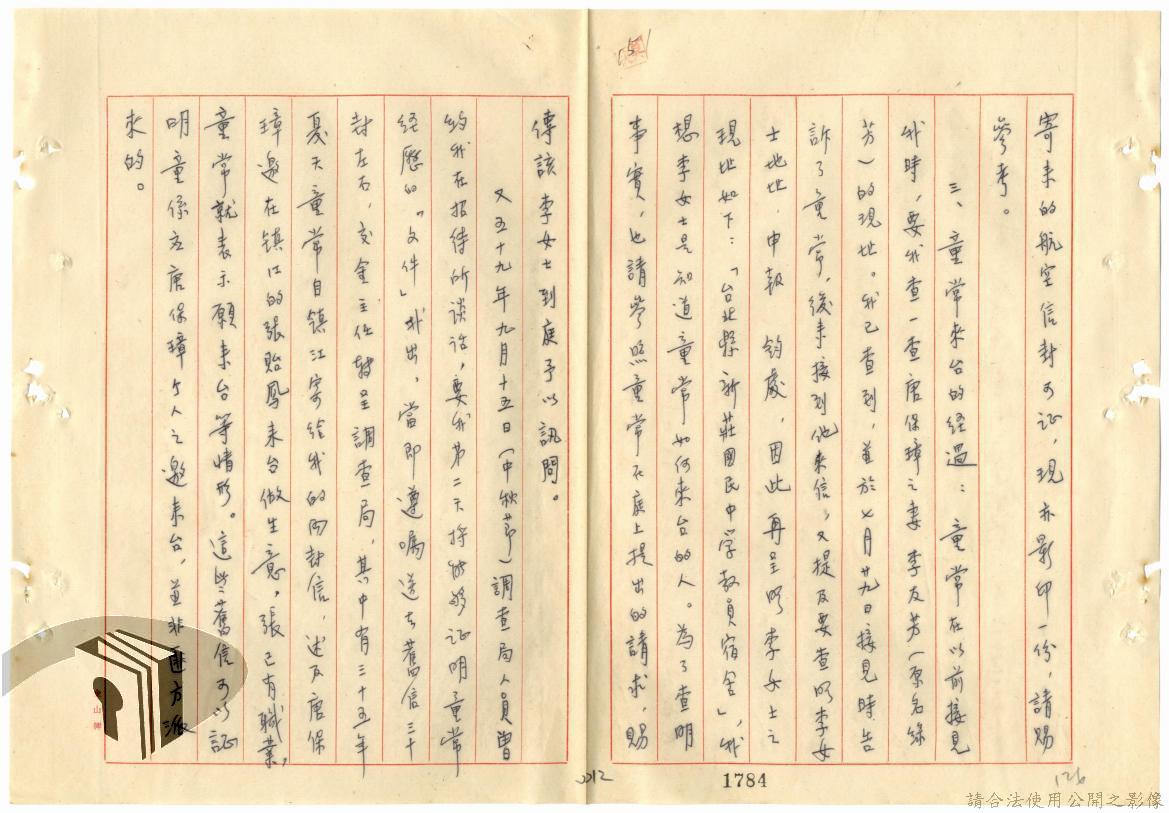 寄來的航空信封可証，現亦影印一份，請賜
參考。
三、童常來台的経過：童常在以前接見
我時，要我查一查唐保璋之妻李友芳（原名
芳）的現址。我已查到，並於七月廿九日接見時告
訴了童常，後來接到他來信，又提及要查明李女
士地址，申報　鈞處，因此再呈明李女士之
現址如下：「台北縣新莊國民中学教員宿舍」，我
想李女士是知道童常如何來台的人。為了查明
事實，也請參照童常在庭上提出的請求，賜
傳該李女士到庭予以訊問。
又五十九年九月十五日（中秋節）調查局人員曾
約我在招待所談話，要我第二天将能够证明童常
経歷的「文件」找出，當即遵囑送去舊信三十
封左右，交金主任轉呈調查局，其中有三十五年
夏天童常自镇江寄给我的兩封信，述及唐保
璋邀在镇江的張貽鳳來台做生意，張已有職業，
童常就表示願來台等情形。這些舊信可以証
明童係应唐保璋个人之邀來台，並非匪方派
來的。
1784
126
請合法使用公開之影像